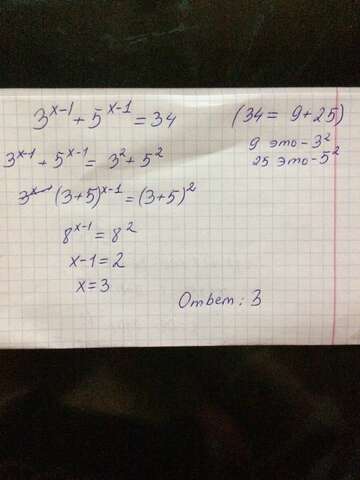 3^{x-1} + 5^{x-1} = 34 (34 = 9 + 25)
9 это - 3^2
25 это - 5^2
3^{x-1} + 5^{x-1} = 3^2 + 5^2
(3+5)^{x-1} = (3+5)^2
8^{x-1} = 8^2
x-1 = 2
x = 3
Ответ: 3